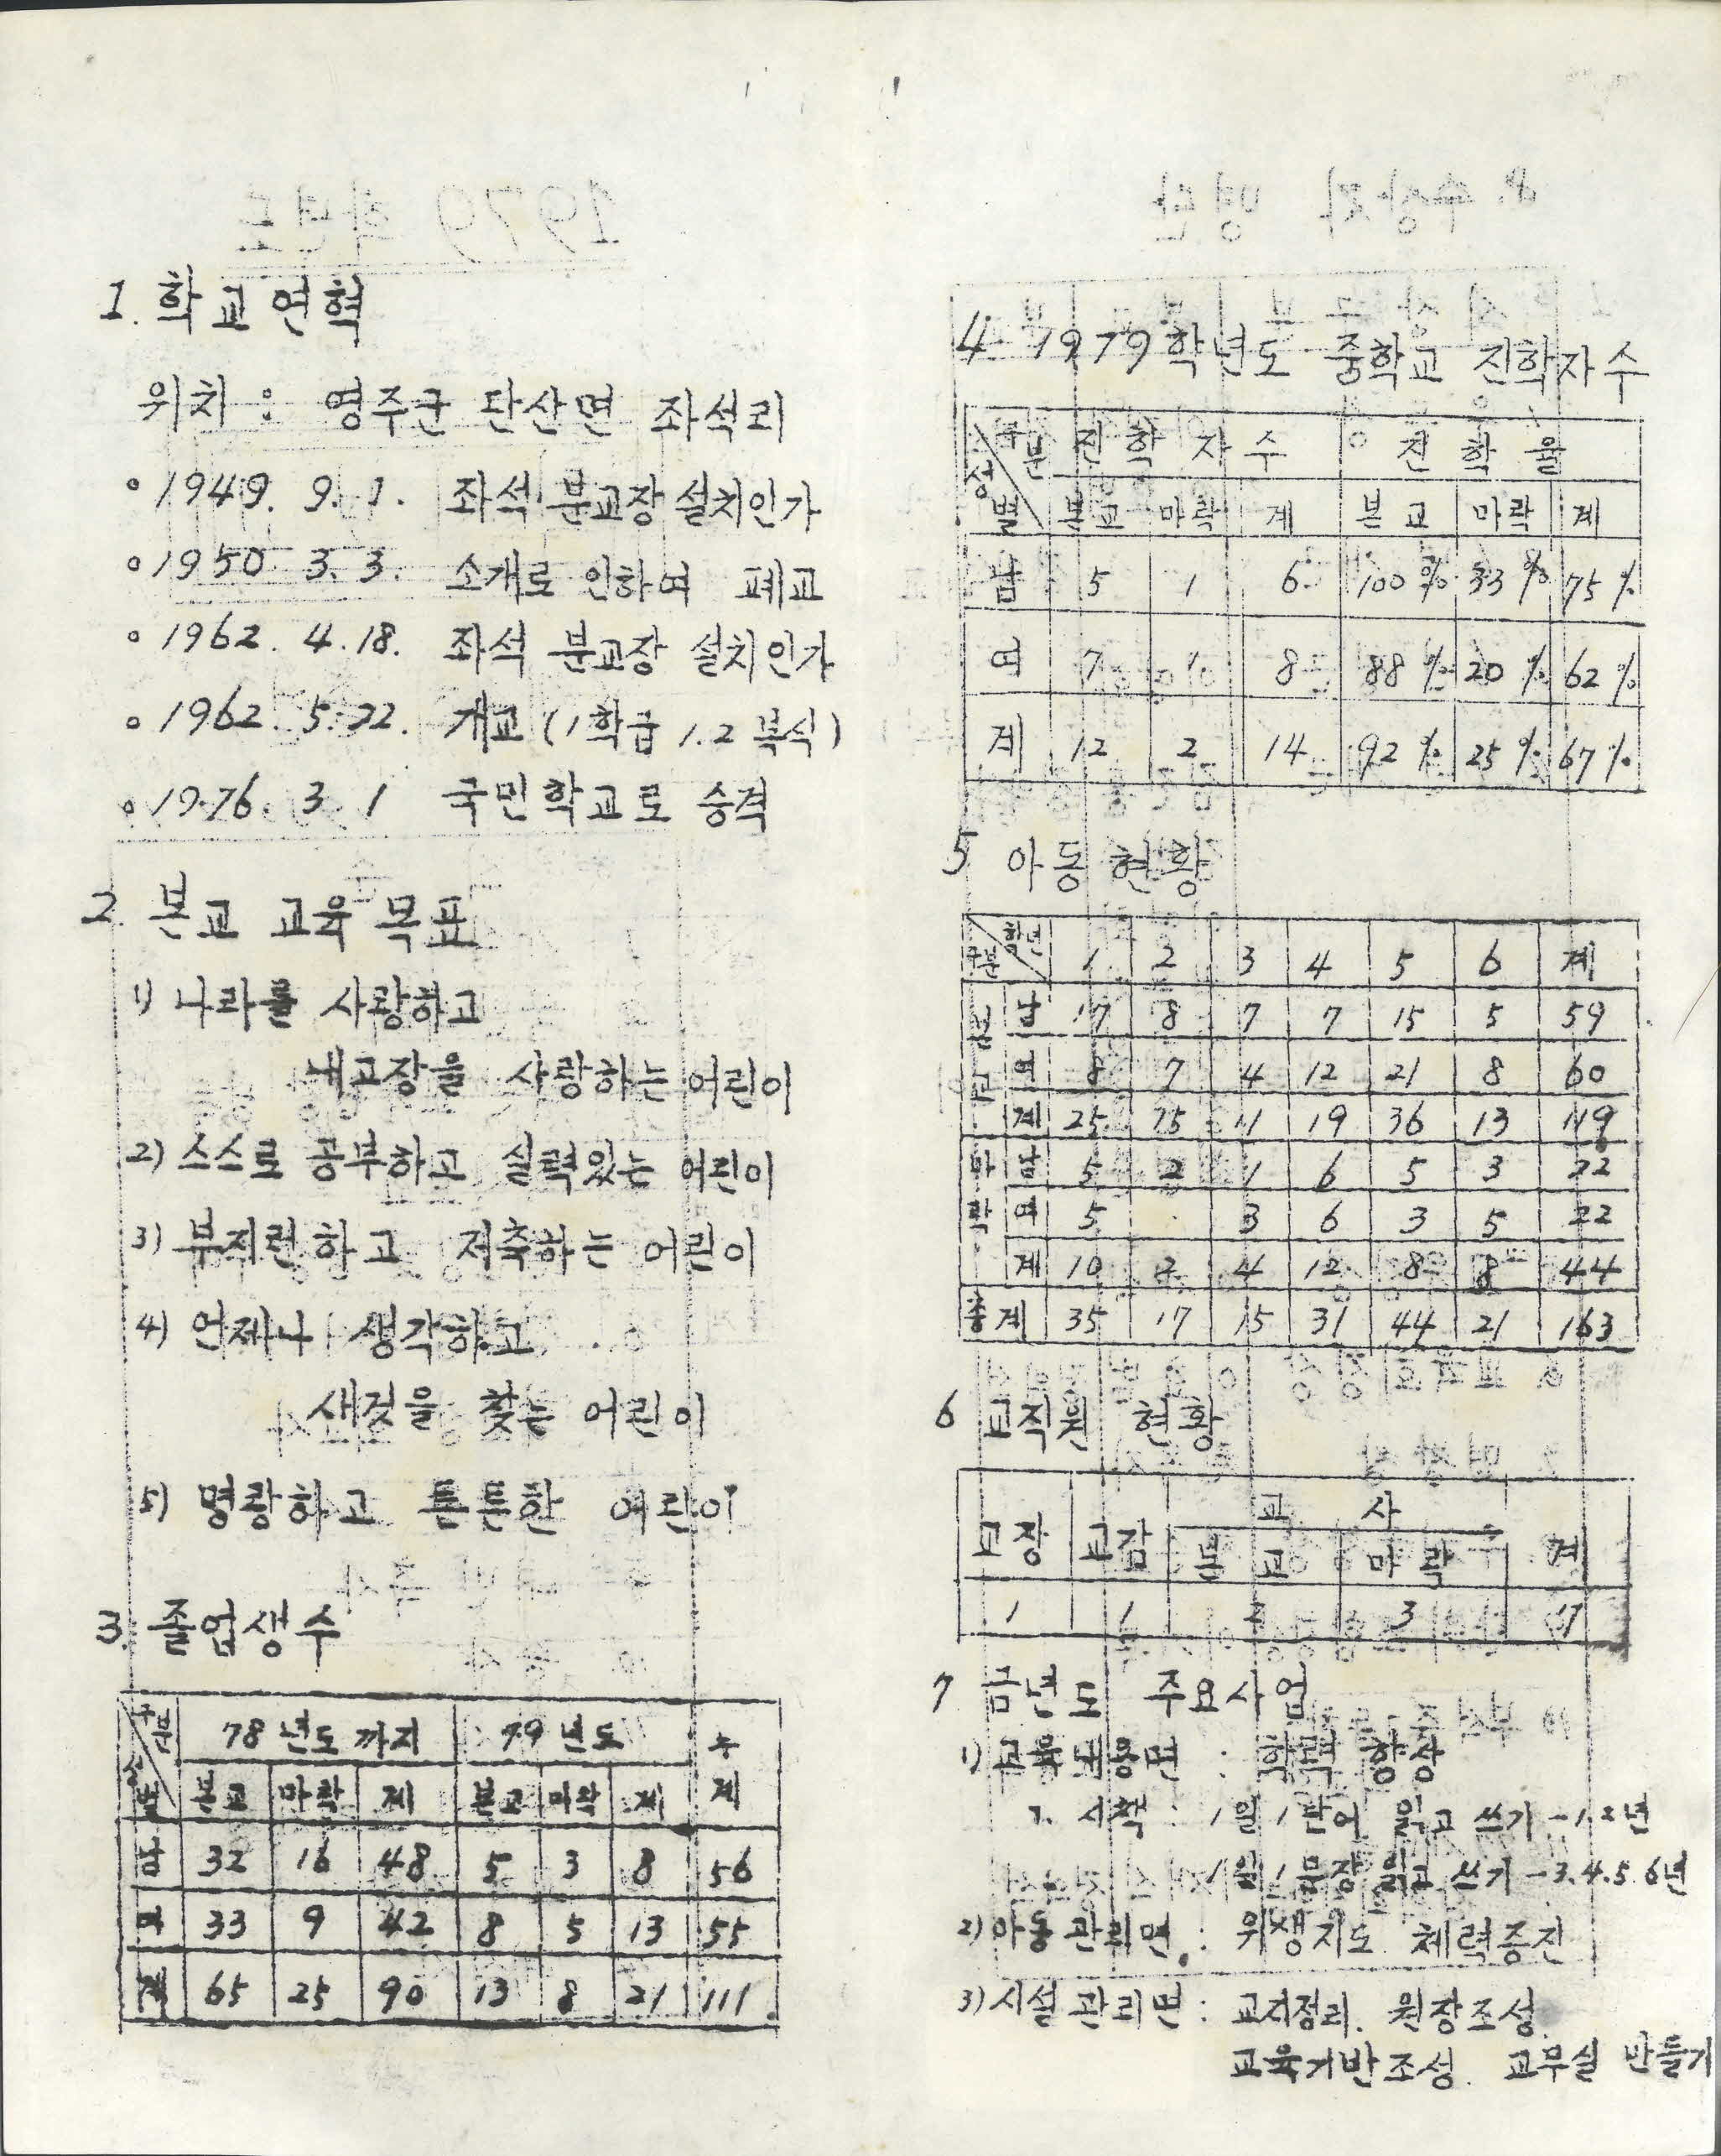 1. 학교연혁
위치 : 영주군 단산면 좌석리
○ 1949. 9. 1. 좌석 분교장 설치인가
○ 1950. 3. 3. 소개로 인하여 폐교
○ 1962. 4. 18. 좌석 분교장 설치인가
○ 1962. 5. 22. 개교 (1학급 1.2 복식)
○ 1976. 3. 1 국민학교로 승격
2. 본교 교육 목표
1) 나라를 사랑하고
내고장을 사랑하는 어린이
2) 스스로 공부하고 실력있는 어린이
3) 부지런하고 저축하는 어린이
4) 언제나 생각하고
새것을 찾는 어린이
5) 명랑하고 튼튼한 어린이
3. 졸업생수
구분 78년도 까지 79년도 누계
성별 본교 마락 계 본교 마락 계
남 32 16 48 5 3 8 56
여 33 9 42 8 5 13 55
계 65 25 90 13 8 21 111
4. 1979학년도 중학교 진학자수
구분 진학자수 진학율
성별 본교 마락 계 본교 마락 계
남 5 1 6 100% 33% 75%
여 7 1 8 88% 20% 62%
계 12 2 14 92% 25% 67%
5 아동현황
구분 학년 1 2 3 4 5 6 계
본교 남 17 8 7 7 15 5 59
여 8 7 4 12 21 8 60
계 25 15 11 19 36 13 119
마락 남 5 2 1 6 5 3 22
여 5 3 6 3 5 22
계 10 2 4 12 8 8 44
총계 35 17 15 31 44 21 163
6 교직원 현황
교장 교감 교사 계
본교 마락
1 1 3
7 금년도 주요사업
1) 교육내용면 : 학력 향상
ㄱ. 시책 : 1일 1단어 읽고 쓰기 - 1.2년
1일 1문장 읽고 쓰기 - 3.4.5.6년
2) 아동관리면 : 위생지도. 체력증진
3) 시설관리면 : 교지정리. 원장조성.
교육기반조성. 교무실 만들기